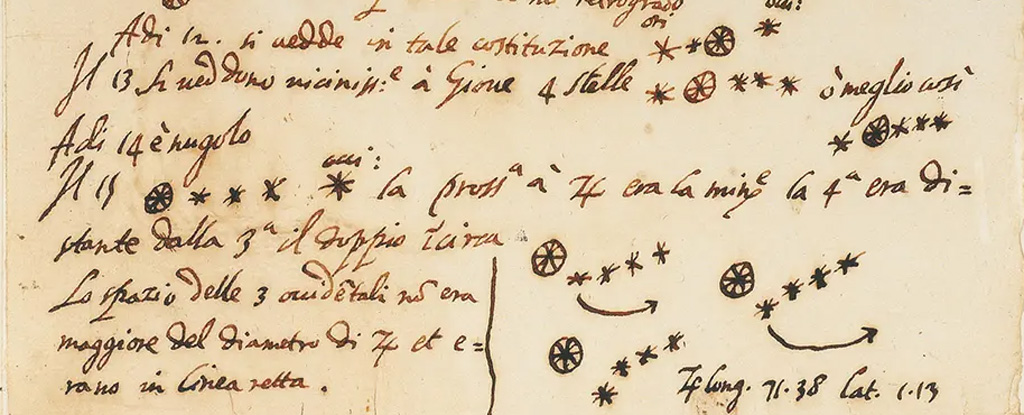 no retrogrado
Adi 12. si vedde in tale costituzione ori: occi:
Il 13 si veddono vicinissi:e à Giove 4 stelle ò meglio così
Adi 14 è nugolo
Il 15 occi: la prossa à ♃ era la mine la 4a era di=
stante dalla 3a il doppio circa
Lo spazio delle 3 occidētali nō era
maggiore del diametro di ♃ et e=
rano in linea retta.
♃ long. 71.38 lat. 1.13